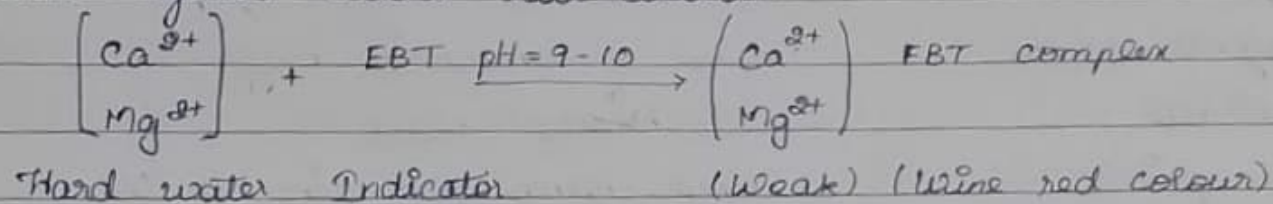 [Ca2+ Mg2+] + EBT pH = 9-10 → (Ca2+ Mg2+) EBT complex
Hard water Indicator (Weak) (Wine red colour)